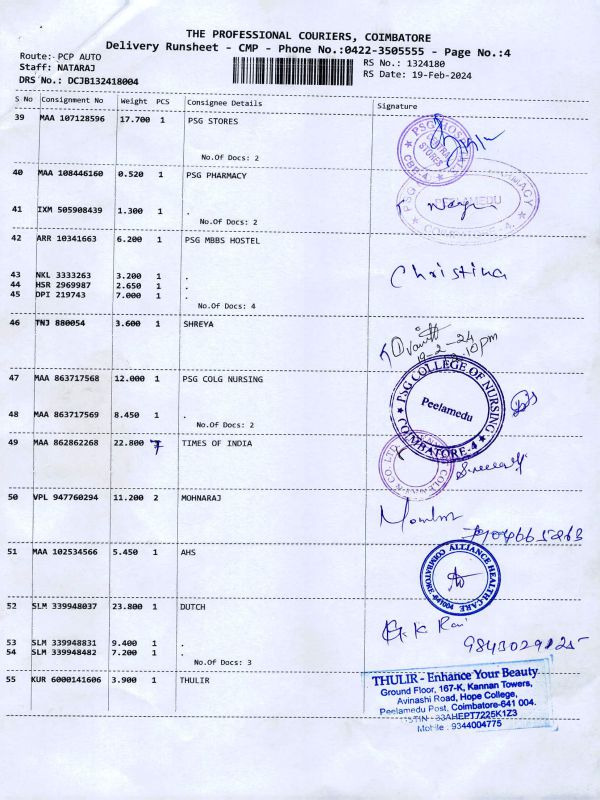 THE PROFESSIONAL COURIERS, COIMBATORE
Delivery Runsheet - CMP - Phone No.:0422-3505555 - Page No.:4
Route: PCP AUTO
Staff: NATARAJ
DRS No.: DCJB132418004
RS No.: 1324180
RS Date: 19-Feb-2024
S No Consignment No Weight PCS Consignee Details Signature
39 MAA 107128596 17.700 1 PSG STORES
No.Of Docs: 2
40 MAA 108446160 0.520 1 PSG PHARMACY
41 IXM 505908439 1.300 1 .
No.Of Docs: 2
42 ARR 10341663 6.200 1 PSG MBBS HOSTEL
Christina
43 NKL 3333263 3.200 1 .
44 HSR 2969987 2.650 1 .
45 DPI 219743 7.000 1 .
No.Of Docs: 4
46 TNJ 880054 3.600 1 SHREYA
19-2-24
47 MAA 863717568 12.000 1 PSG COLG NURSING
PSG COLLEGE OF NURSING
Peelamedu
COIMBATORE-4
48 MAA 863717569 8.450 1 .
No.Of Docs: 2
49 MAA 862862268 22.800 7 TIMES OF INDIA
50 VPL 947760294 11.200 2 MOHNARAJ
51 MAA 102534566 5.450 1 AHS
ALLIANCE HEALTH CARE
COIMBATORE-641004
52 SLM 339948037 23.800 1 DUTCH
9843029125
53 SLM 339948831 9.400 1 .
54 SLM 339948482 7.200 1 .
No.Of Docs: 3
55 KUR 6000141606 3.900 1 THULIR
THULIR - Enhance Your Beauty
Ground Floor, 167-K, Kannan Towers,
Avinashi Road, Hope College,
Peelamedu Post, Coimbatore-641 004.
33AHEPT7225K1Z3
Mobile : 9344004775